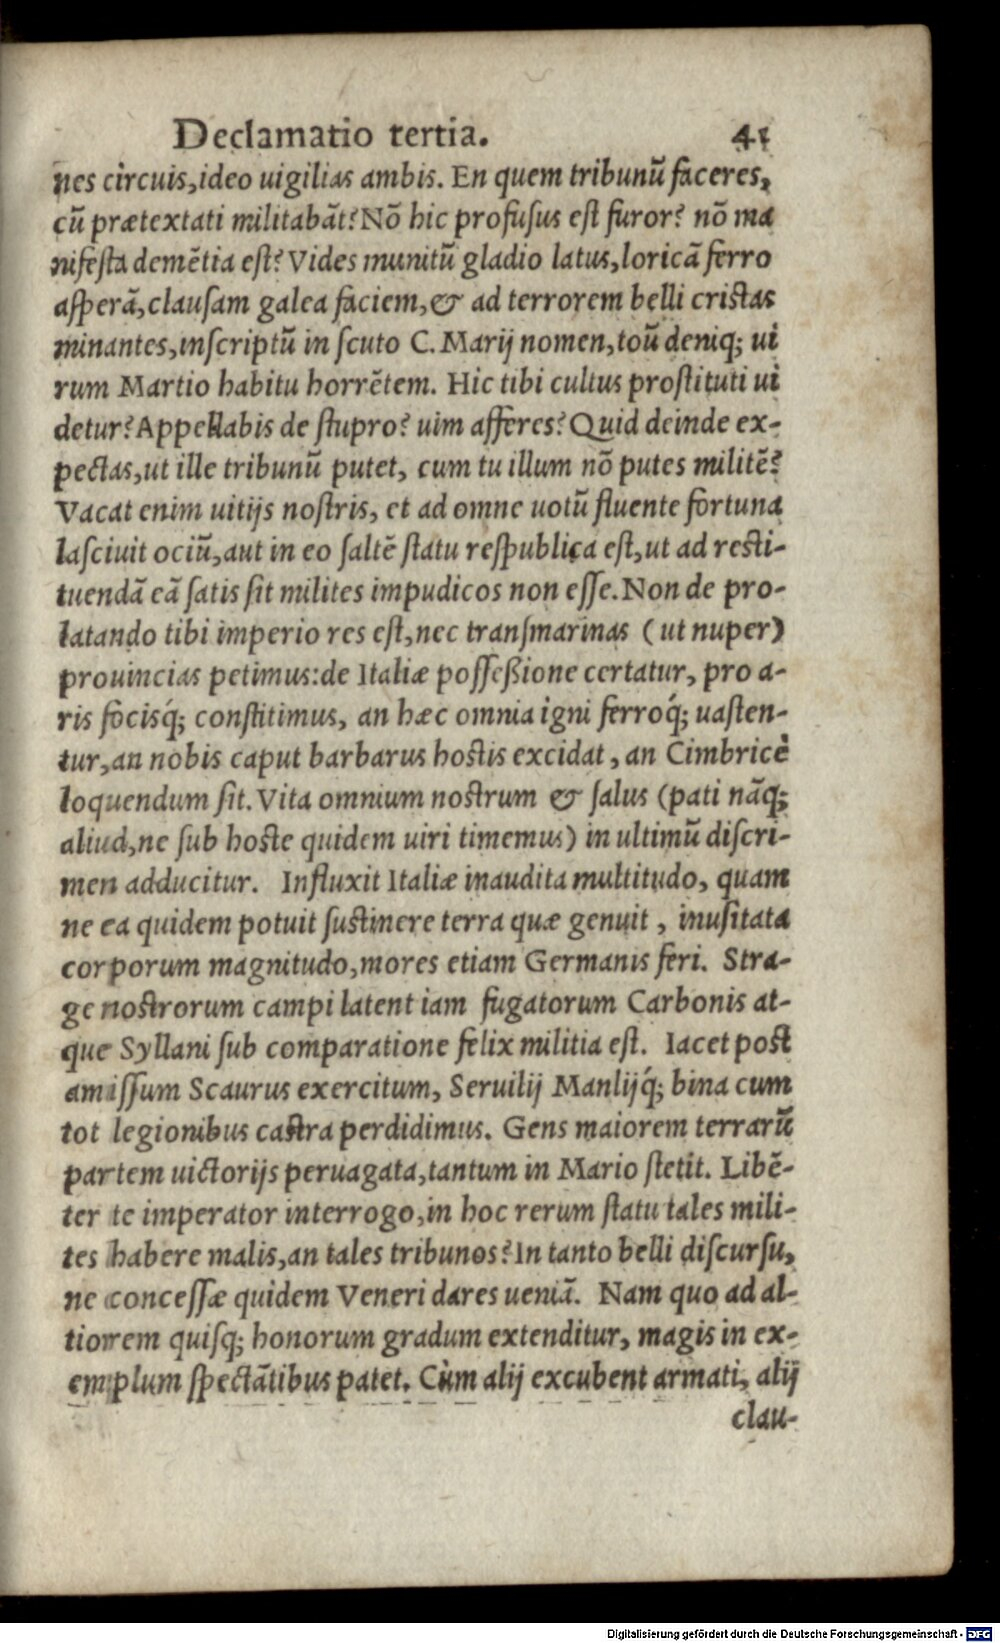 Declamatio tertia. 41
nes circuis,ideo uigilias ambis. En quem tribunū faceres,
cū prætextati militabāt? Nō hic profusus est furor? nō ma
nifesta demētia est? Vides munitū gladio latus,loricā ferro
asperā,clausam galea faciem,& ad terrorem belli cristas
minantes,inscriptū in scuto C. Marij nomen,toū deniq; ui
rum Martio habitu horrētem. Hic tibi cultus prostituti ui
detur? Appellabis de stupro? uim afferes? Quid deinde ex-
pectas,ut ille tribunū putet, cum tu illum nō putes militē?
Vacat enim uitijs nostris, et ad omne uotū fluente fortuna
lasciuit ociū,aut in eo saltē statu respublica est,ut ad resti-
tuendā eā satis sit milites impudicos non esse. Non de pro-
latando tibi imperio res est,nec transmarinas (ut nuper)
prouincias petimus:de Italiæ posseßione certatur, pro a-
ris focisq́; constitimus, an hæc omnia igni ferroq́; uasten-
tur,an nobis caput barbarus hostis excidat, an Cimbricè
loquendum sit. Vita omnium nostrum & salus (pati nāq;
aliud,ne sub hoste quidem uiri timemus) in ultimū discri-
men adducitur. Influxit Italiæ inaudita multitudo, quam
ne ea quidem potuit sustinere terra quæ genuit, inusitata
corporum magnitudo,mores etiam Germanis feri. Stra-
ge nostrorum campi latent iam fugatorum Carbonis at-
que Syllani sub comparatione felix militia est. Iacet post
amissum Scaurus exercitum, Seruilij Manlijq́; bina cum
tot legionibus castra perdidimus. Gens maiorem terrarū
partem uictorijs peruagata,tantum in Mario stetit. Libē-
ter te imperator interrogo,in hoc rerum statu tales mili-
tes habere malis,an tales tribunos? In tanto belli discursu,
ne concessæ quidem Veneri dares ueniā. Nam quo ad al-
tiorem quisq; honorum gradum extenditur, magis in ex-
emplum spectātibus patet. Cùm alij excubent armati, alij
clau-
Digitalisierung gefördert durch die Deutsche Forschungsgemeinschaft - DFG